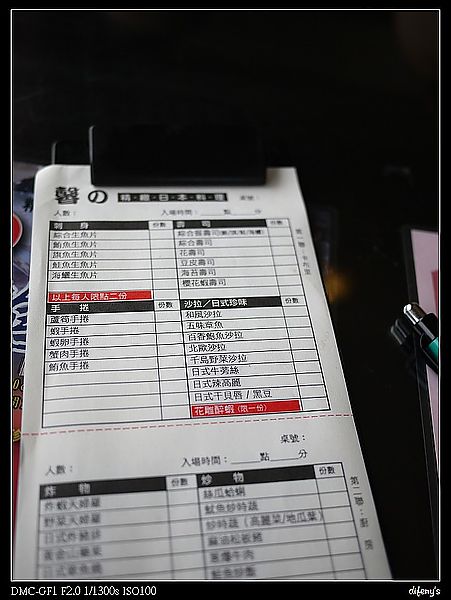 馨の 精緻日本料理 桌號：
人數： 入場時間： 點 分
刺 身 份數 壽 司 份數
綜合生魚片
鮪魚生魚片
旗魚生魚片
鮭魚生魚片
海鱺生魚片
花壽司
豆皮壽司
海苔壽司
櫻花蝦壽司
以上每人限點二份
手 捲 份數 沙拉/日式珍味 份數
蘆筍手捲
蝦手捲
蝦卵手捲
蟹肉手捲
鮪魚手捲
和風沙拉
五味章魚
百香鮑魚沙拉
北歐沙拉
千島野菜沙拉
日式牛蒡絲
日式辣高麗
日式干貝唇 / 黑豆
花雕醉蝦 (限一份)
桌號：
人數： 入場時間： 點 分
炸 物 份數 炒 物 份數
炸蝦天婦羅
野菜天婦羅
日式炸豬排
絲瓜蛤蜊
魷魚炒時蔬
炒時蔬（高麗菜/地瓜葉）
麻油松板豬
蔥爆牛肉
第二聯：廚房
DMC-GF1 F2.0 1/1300s ISO100
difeny's